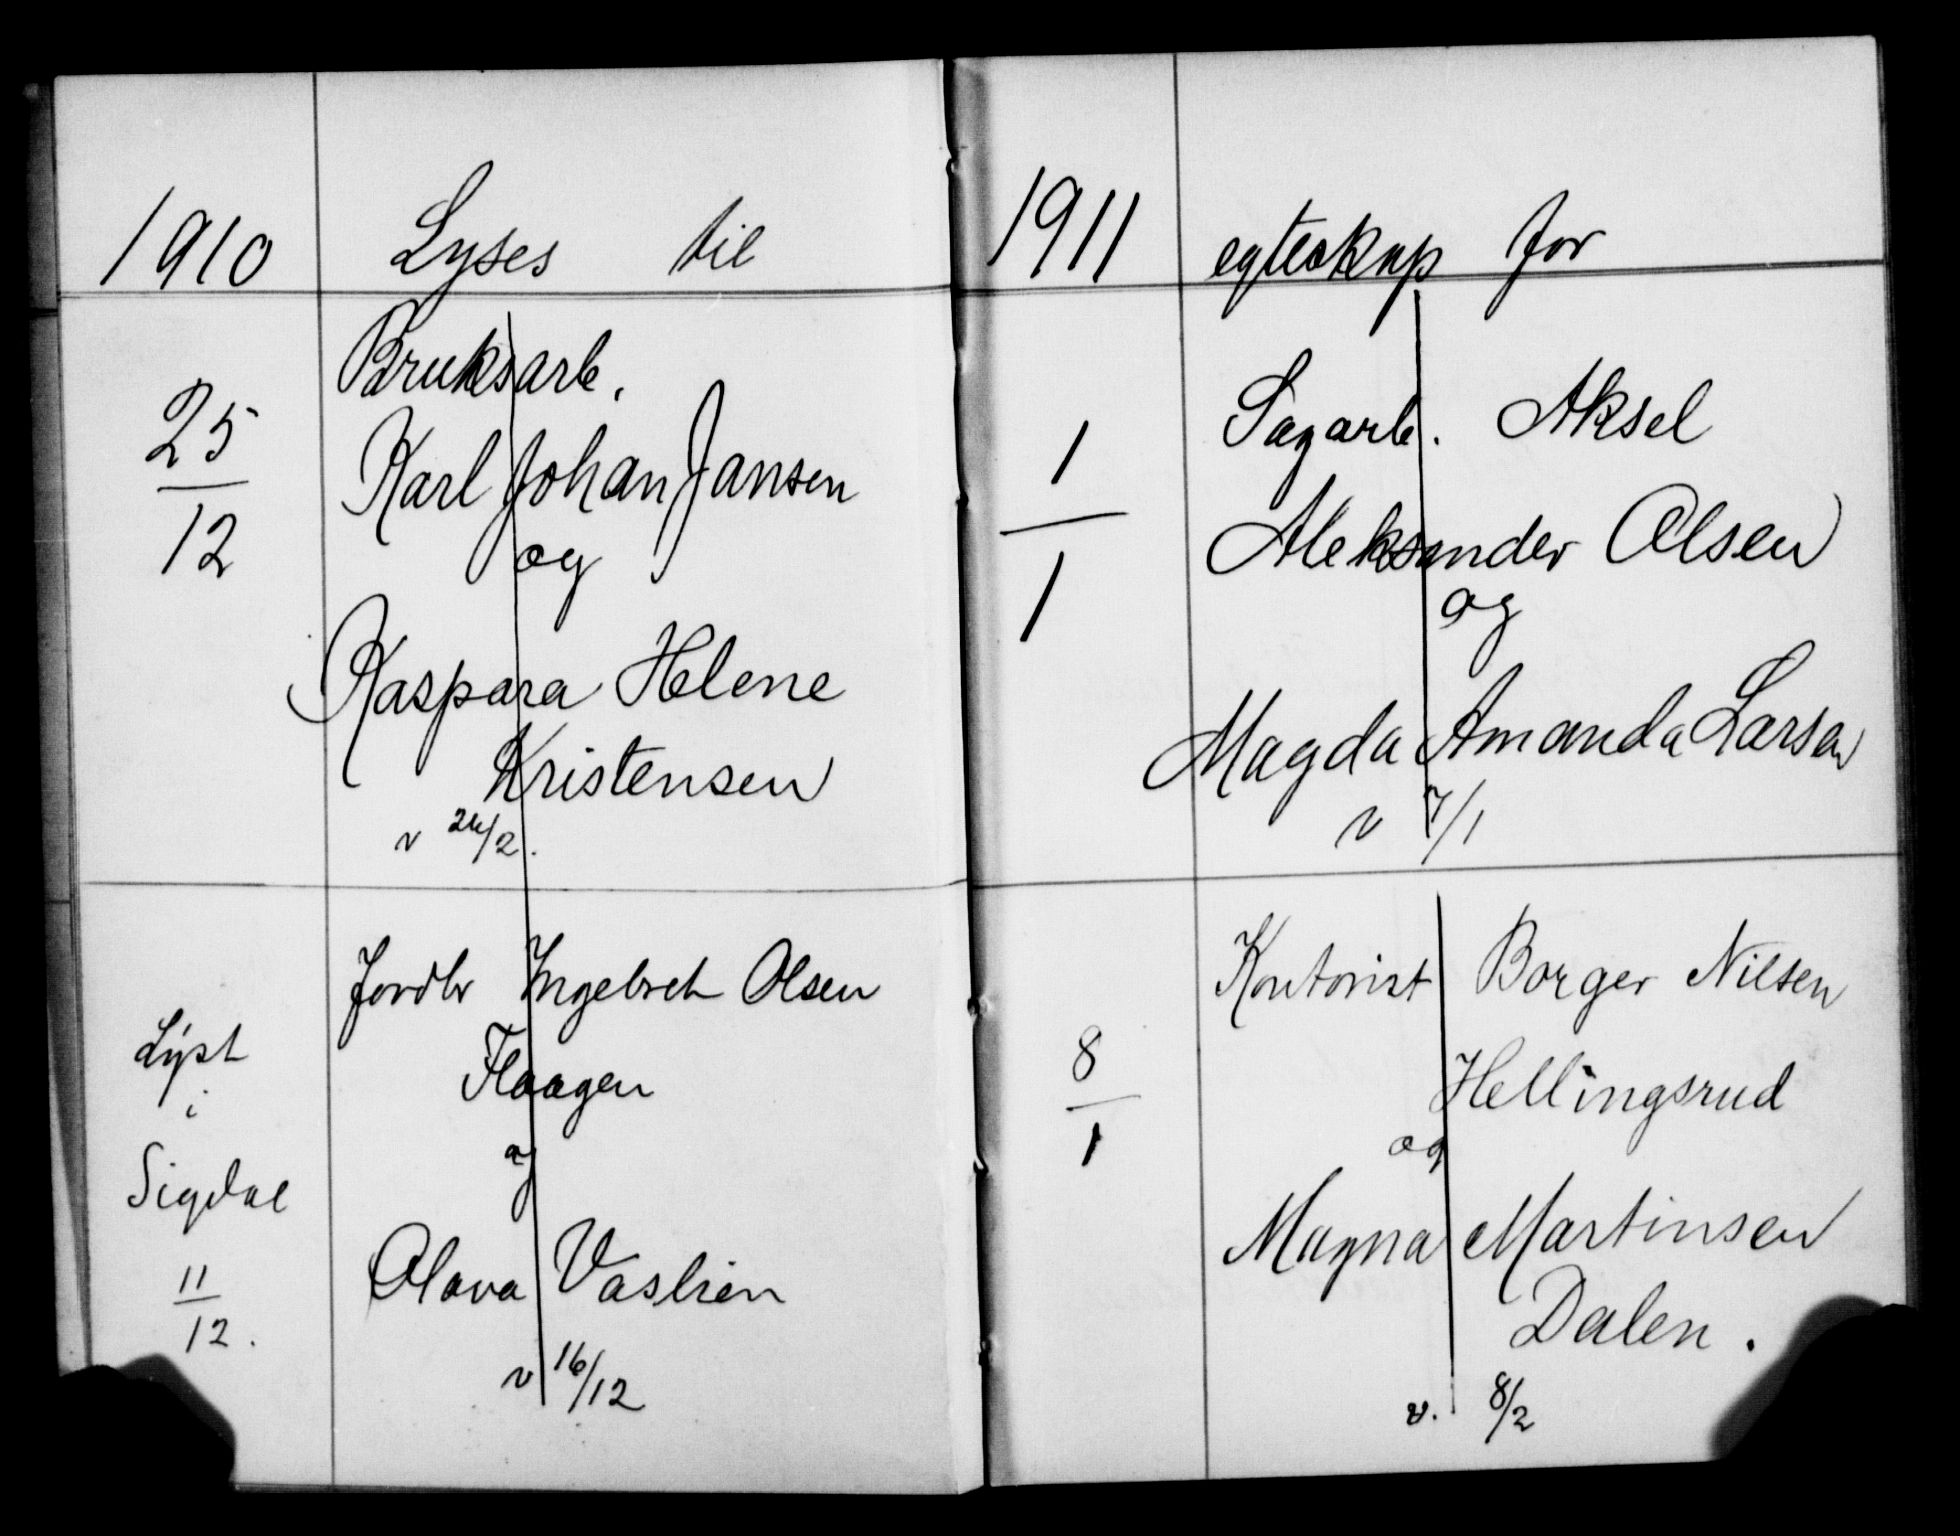 1910
Lyses til
25
12
Bruksarb.
Karl Johan Jansen
og
Kaspara Helene
Kristensen
v 26/2.
Lyst
i
Sigdal
11
12.
Jordbr Ingebret Olsen
Flaagen
og
Olava Vaslien
v 16/12
1911
egteskap for
1
1
Sagarb. Aksel
Aleksander Olsen
og
Magda Amanda Larsen
v 7/1
8
1
Kontorist Borger Nilsen
Hellingsrud
og
Magna Martinsen
Dalen.
v. 8/2